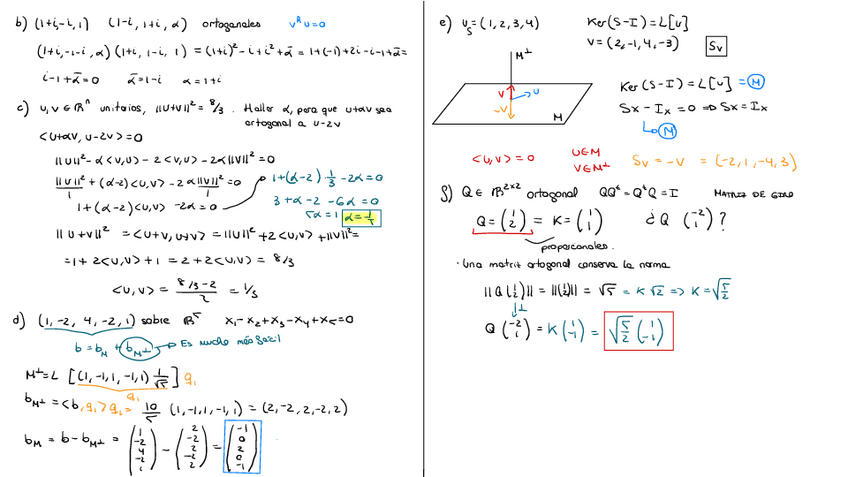 b) (1+i,-i,1) (1-i, 1+i, α) ortogonales vᴴu=0
(1+i,-1-i, α) (1+i, 1-i, 1) = (1+i)² -i+i²+ᾱ = 1+(-1)+2i-i-1+ᾱ=
i-1+ᾱ=0 ᾱ=1-i α=1+i
c) u,v ∈ ℝⁿ unitarios, ||u+v||² = 8/3. Hallar α, para que u+αv sea
ortogonal a u-2v
<u+αv, u-2v>=0
||u||²-α<v,u>-2<v,u>-2α||v||²=0
||u||²+(α-2)<u,v>-2α||v||²=0
1 1
1+(α-2)<u,v> -2α=0
1+(α-2)·1/3-2α=0
3+α-2-6α=0
5α=1 α=1/5
||u+v||² =<u+v, u+v>=||u||²+2<u,v>+||v||²=
=1+2<u,v>+1=2+2<u,v>=8/3
<u,v>= (8/3-2)/2 = 1/3
d) (1,-2, 4,-2,1) sobre ℝ⁵ x₁-x₂+x₃-x₄+x₅=0
b=b_M+b_M⊥ Es mucho más fácil
M⊥=L [(1,-1,1,-1,1) 1/√5] q₁
q₁
b_M⊥=<b,q₁>q₁= 10/5 (1,-1,1,-1,1)=(2,-2,2,-2,2)
b_M = b-b_M⊥ = (1 -2 4 -2 1) - (2 -2 2 -2 2) = (-1 0 2 0 -1)
e) u_S=(1,2,3,4) Ker(S-I)=L[u]
v=(2,-1,4,-3) Sv
M⊥
v u
-v
M
Ker(S-I)=L[u]=M
Sx-Ix=0 ⇒ Sx=Ix
M
<u,v>=0 u∈M
v∈M⊥ Sv=-v =(-2,1,-4,3)
f) Q∈ℝ²ˣ² ortogonal QQᵗ=QᵗQ=I MATRIZ DE GIRO
Q=(1 2)=K=(1 1) ¿Q (-2 1)?
proporcionales.
· Una matriz ortogonal conserva la norma
||Q(1 2)||=||(1 2)||=√5=K√2 ⇒ K=√(5/2)
⊥
Q (-2 1)=K(1 -1)=√(5/2)(1 -1)